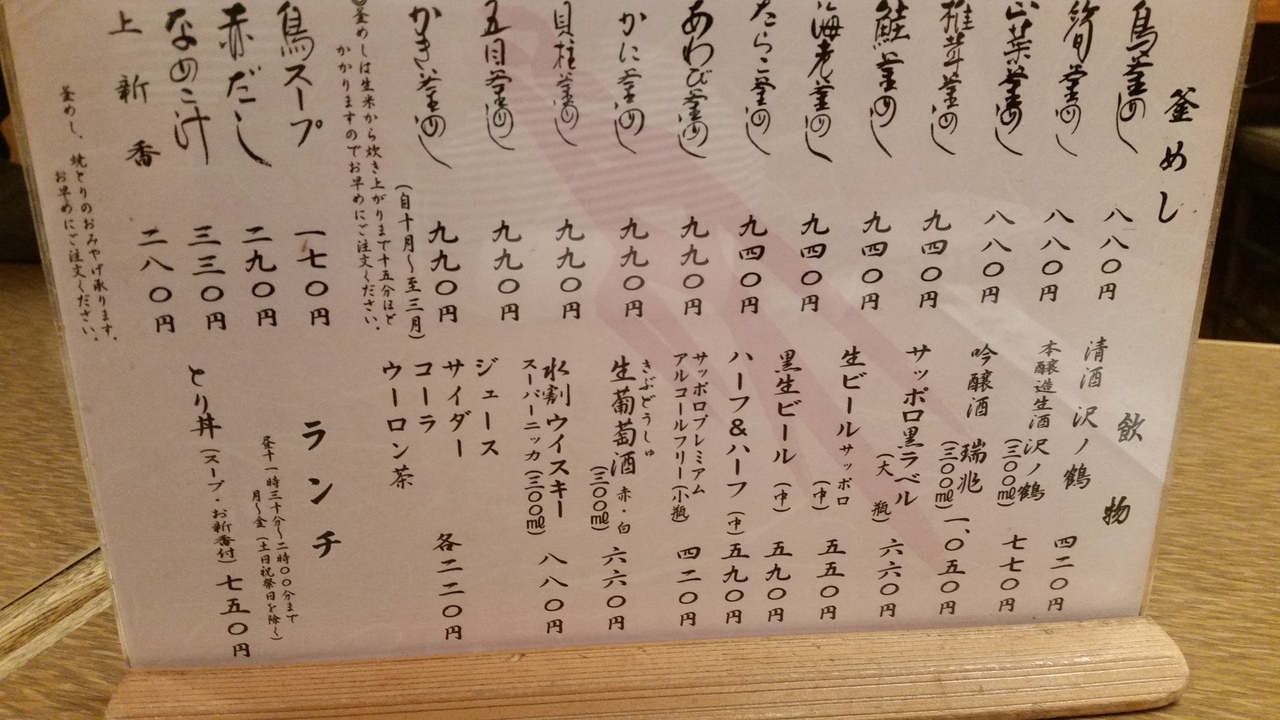 釜めし
鳥釜めし 八八〇円
筍釜めし 八八〇円
山菜釜めし 八八〇円
椎茸釜めし 九四〇円
鮭釜めし 九四〇円
海老釜めし 九四〇円
たらこ釜めし 九四〇円
あわび釜めし 九九〇円
かに釜めし 九九〇円
貝柱釜めし 九九〇円
五目釜めし 九九〇円
かき釜めし 九九〇円
(自十月〜至三月)
釜めしは生米から炊き上がりまで十五分ほど
かかりますのでお早めにご注文ください。
鳥スープ 一七〇円
赤だし 二九〇円
なめこ汁 三三〇円
上新香 二八〇円
釜めし、焼とりのおみやげ承ります。
お早めにご注文ください。
飲物
清酒 沢ノ鶴 四二〇円
本醸造生酒 沢ノ鶴 (三〇〇㎖) 七七〇円
吟醸酒 瑞兆 (三〇〇㎖) 一、〇五〇円
サッポロ黒ラベル (大瓶) 六六〇円
生ビール サッポロ (中) 五五〇円
黒生ビール (中) 五九〇円
ハーフ&ハーフ (中) 五九〇円
サッポロプレミアム
アルコールフリー (小瓶) 四二〇円
きぶどうしゅ
生葡萄酒 赤・白 (三〇〇㎖) 六六〇円
水割ウイスキー
スーパーニッカ (三〇〇㎖) 八八〇円
ジュース
サイダー
コーラ
ウーロン茶
各二二〇円
ランチ
昼十一時三十分〜二時〇〇分まで
月〜金 (土日祝祭日を除く)
とり丼 (スープ・お新香付) 七五〇円